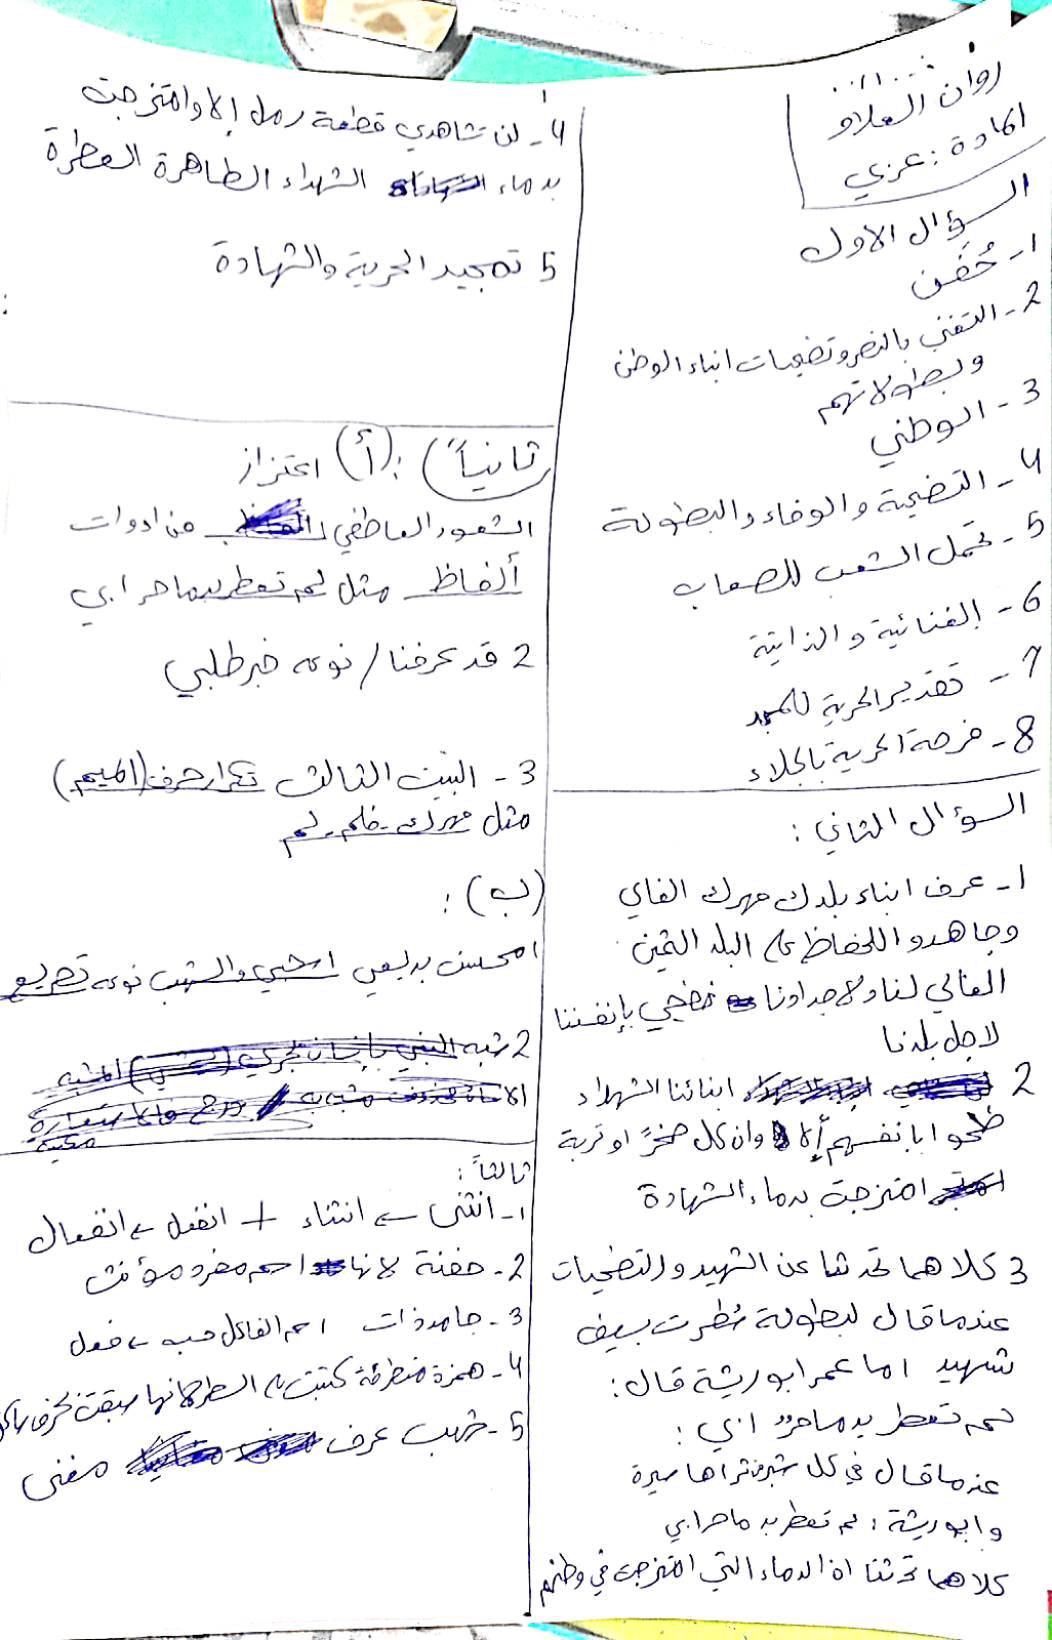 روان العلاو
المادة : عربي
السؤال الاول
1- حُفَن
2- التغني بالنصر وتضحيات ابناء الوطن
وبطولاتهم
3- الوطني
4- التضحية والوفاء والبطولة
5- تحمل الشعب للصعاب
6- الغنائية والذاتية
7- تقدير الحرية للمجد
8- فرحة الحرية بالجلاء
السؤال الثاني :
1- عرف ابناء بلدك مهرك الغاي
وجاهدو اللحفاظ على البلد الثمين
الغالي لنا ولاجدادنا نضحي بإنفسنا
لاجل بلدنا
2 ابنائنا الشهداء
ظحوا بانفسهم إلا وان كل صخرً او تربة
امتزجت بدماء الشهادة
3 كلاهما تحدثا عن الشهيد والتضحيات
عندما قال لبطولة سُطرت بسيف
شهيد اما عمر ابو ريشة قال :
لم تعطر بدما حرد ابي :
عندما قال في كل شبر من ثراها سيرة
وابوريشة : لم تعطر بد ما حرابي
كلاهما تحدثنا ان الدماء التي امتزجت في وطنهم
4- لن تشاهدي قطعة رمل إلا وامتزجت
بدماء الشهداء الطاهرة العطرة
5 تمجيد الحرية والشهادة
ثانياً : (أ) اعتزاز
الشعور العاطفي من ادوات
ألفاظ مثل لم تعطر بدما حر ابي
2 قد عرفنا / نوعه خبر طلبي
3- البيت الثالث تكرار حرف (الميم)
مثل مهرك - فلم - لم
(ب) :
1 محسن بديعي اسحبي والشهب نوعه تصريع
2 شبه
ثالثاً :
1- انتشى ← انتشاء + انفعل ← انفعال
2- حفنة لانها اسم مفرد مؤنث
3- جامد ذات اسم الفاعل صبه ← فعول
4- همزة متطرفة كتبت على السطر لانها سبقت بحرف ساكن
5- شهب عرف مغنى